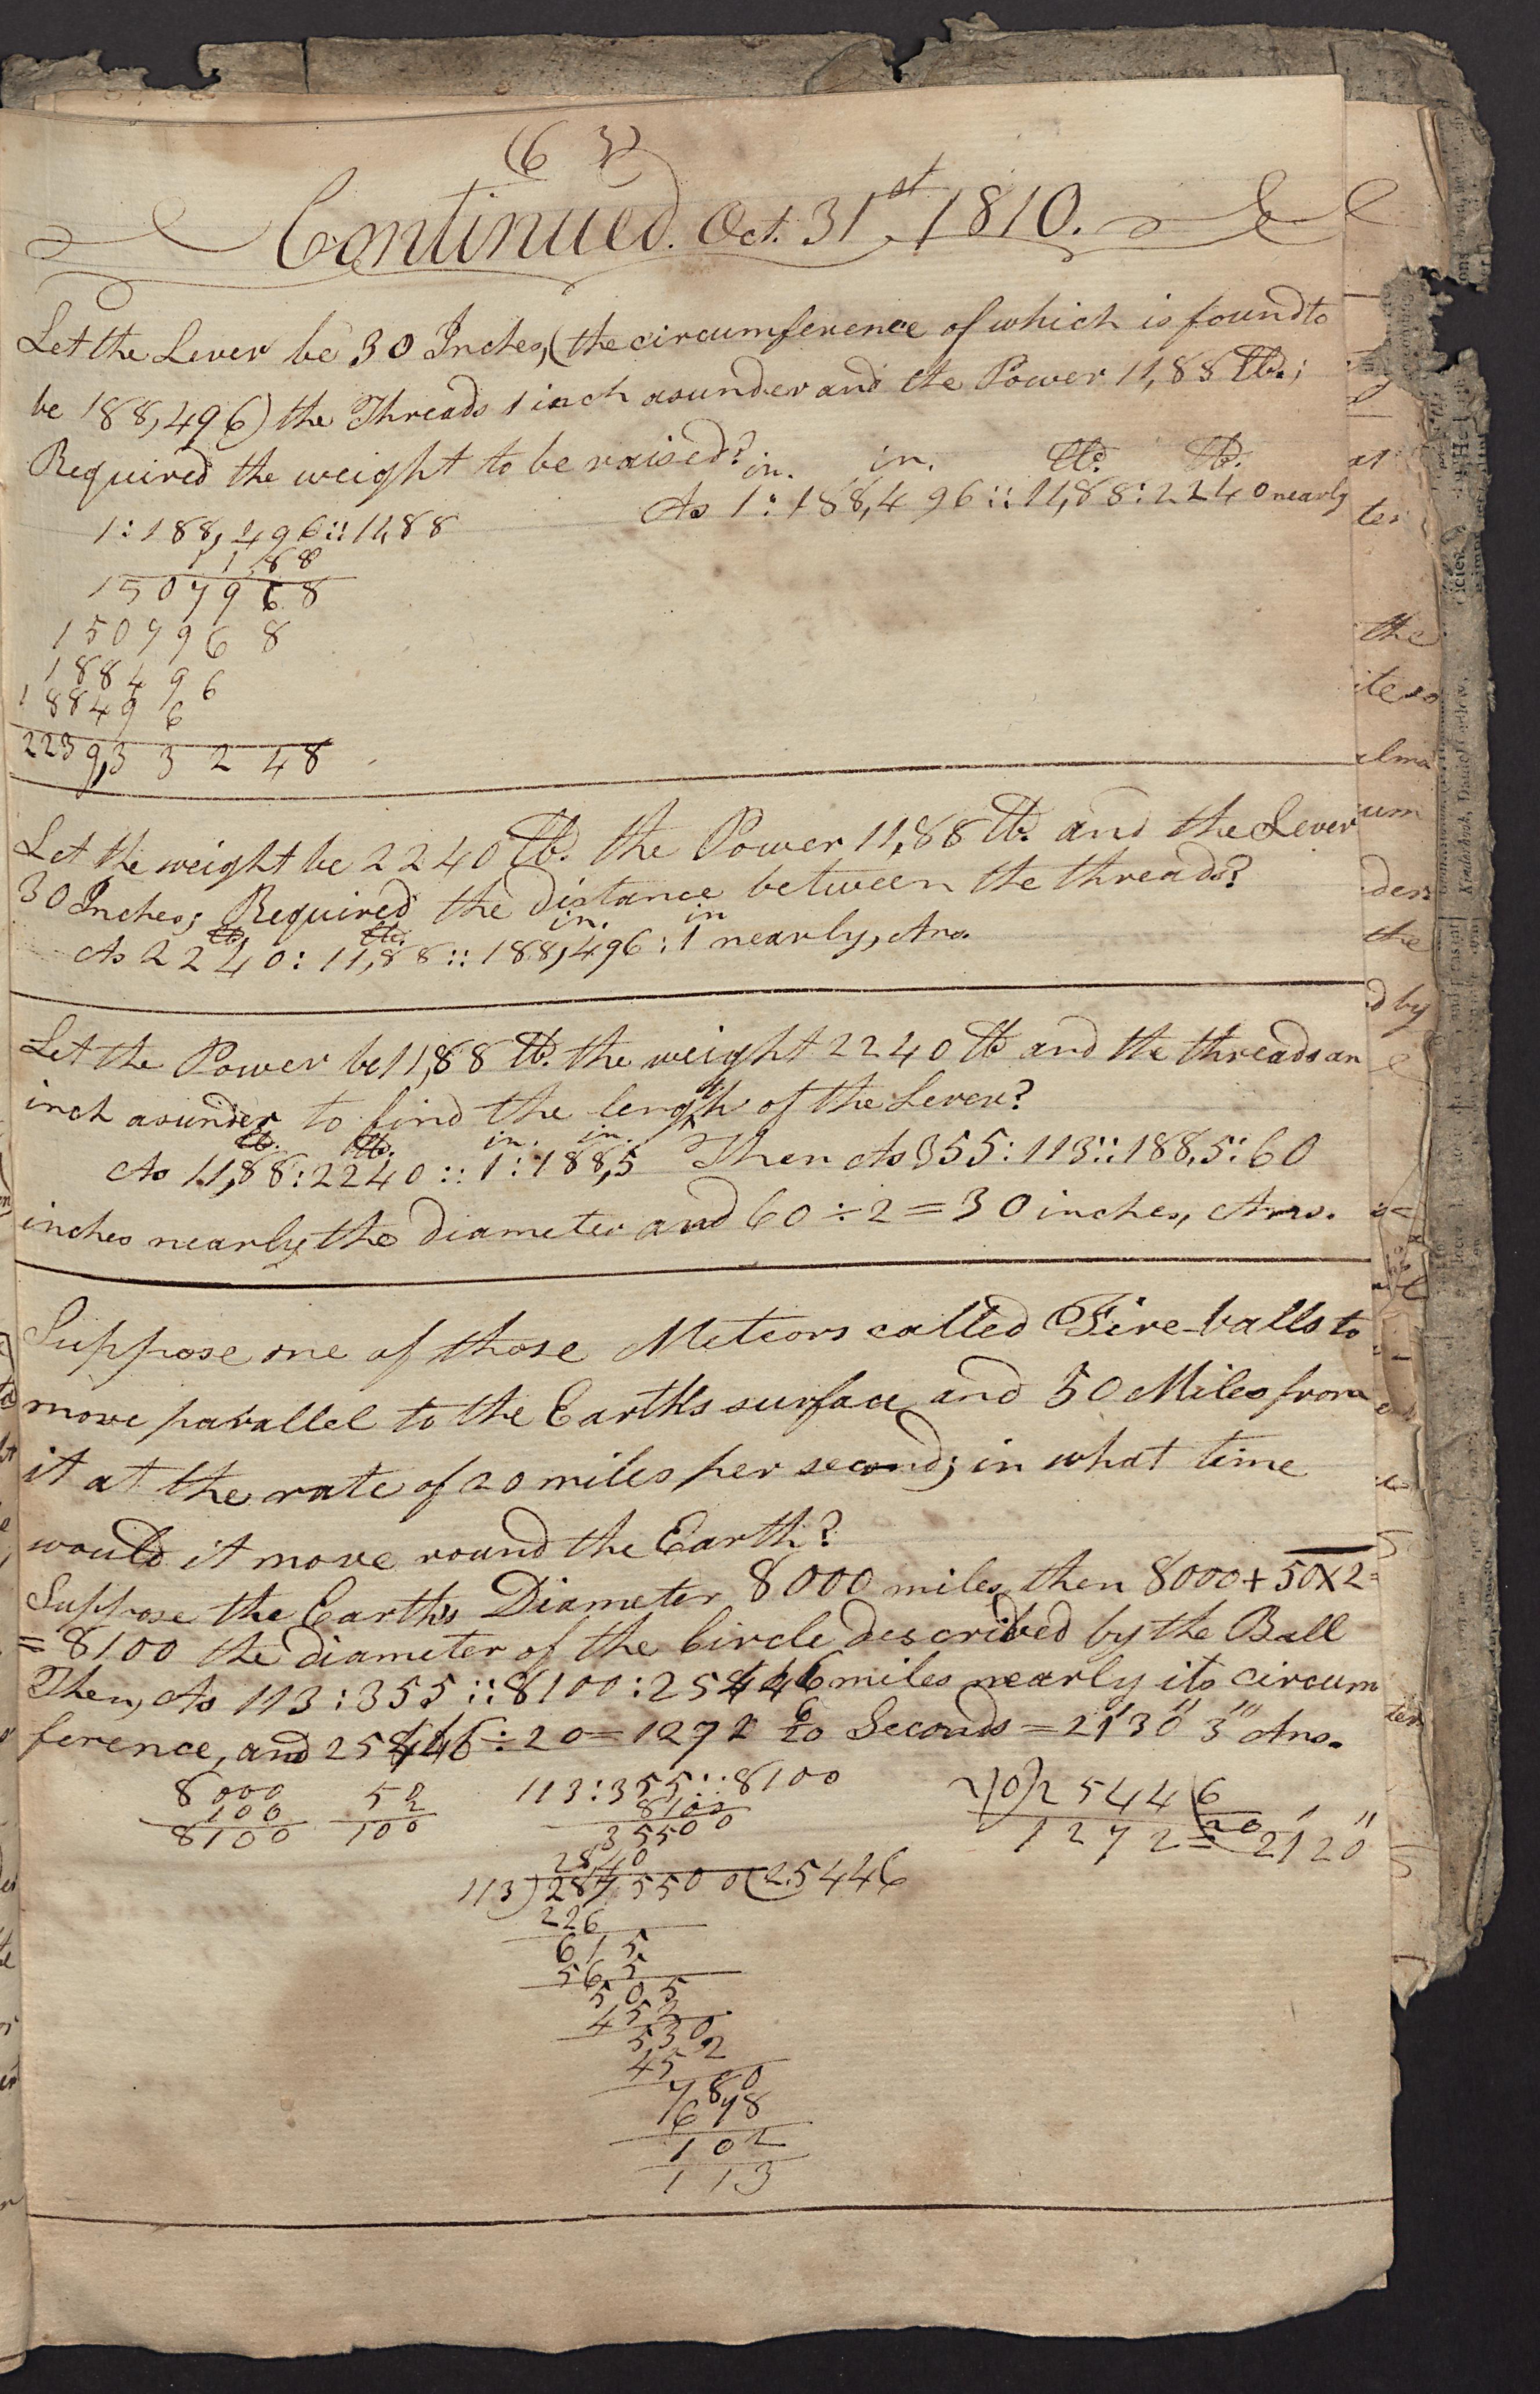 (63)
Continued. Oct. 31st 1810.
Let the Lever be 30 Inches, (the circumference of which is found to
be 188,496) the Threads 1 inch asunder and the Power 11,88 lb.;
Required the weight to be raised?
in. in. lb. lb.
As 1 : 188,496 :: 11,88 : 2240 nearly
1 : 188,496 :: 11,88
11,88
1507968
1507968
188496
188496
2239,33248
Let the weight be 2240 lb. the Power 11,88 lb. and the Lever
30 Inches; Required the distance between the threads?
lb. lb. in. in
As 2240 : 11,88 :: 188,496 : 1 nearly, Ans.
Let the Power be 11,88 lb. the weight 2240 lb and the threads an
inch asunder to find the length of the Lever?
lb. lb. in. in.
As 11,88 : 2240 :: 1 : 188,5 Then As 355 : 113 :: 188,5 : 60
inches nearly the diameter and 60 ÷ 2 = 30 inches, Ans.
Suppose one of those Meteors called Fire-balls to
move parallel to the Earth's surface and 50 Miles from
it at the rate of 20 miles per second; in what time
would it move round the Earth?
Suppose the Earth's Diameter 8000 miles then 8000 + 50X2=
= 8100 the diameter of the Circle described by the Ball
Then, As 113 : 355 :: 8100 : 25446 miles nearly its circum
ference, and 25446 ÷ 20 = 1272 6/20 Seconds = 21' 30'' 3''' Ans.
8000
100
8100
50
2
100
113 : 355 :: 8100
8100
35500
2840
113) 2875500 (25446
226
615
565
505
452
530
452
780
678
102
113
2|0)2544|6
1272 6/20 = 21' 20''